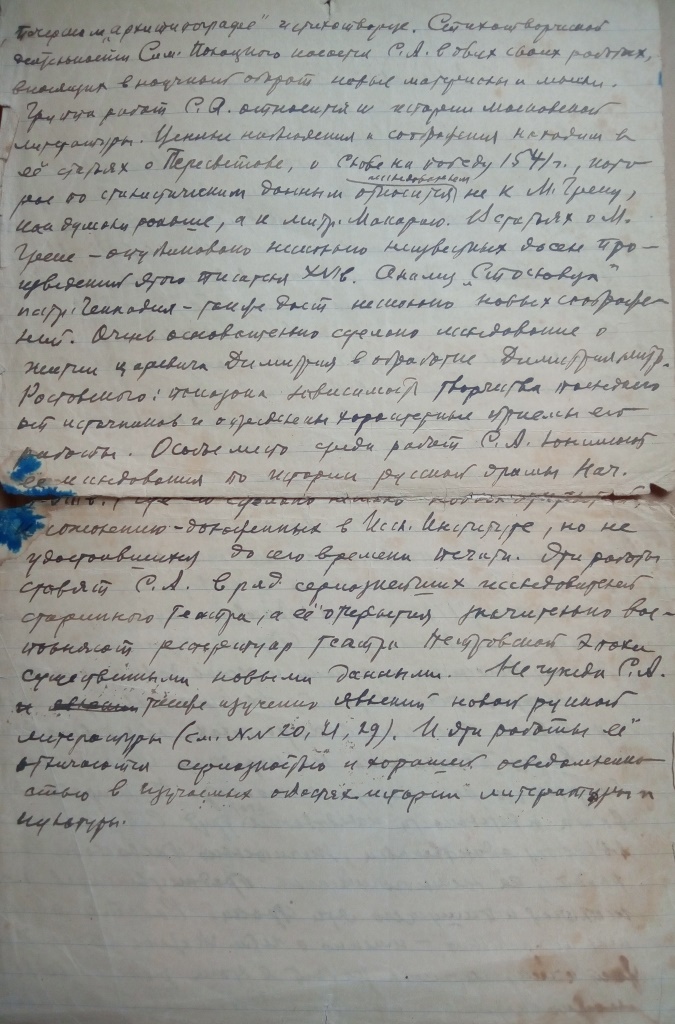 "архитипографе" и стихотворце. Стихотворческой
деятельности Сим. Полоцкого касается С.А. в обеих своих работах,
вносящих в научный оборот новые материалы и мысли.
Группа работ С.А. относится к истории московской
литературы. Ценные наблюдения и соображения находим в
её статьях о Пересветове, о Слове на победу 1541 г., кото-
рое по стилистическим данным относится не к М. Греку,
исследователем
как думали раньше, а к митр. Макарию. В статьях о М.
Греке – опубликовано несколько неизвестных доселе про-
изведений этого писателя XVI в. Анализ "Стословца"
патр. Геннадия – также даст несколько новых соображе-
ний. Очень основательно сделано исследование о
житии царевича Димитрия в обработке Димитрия митр.
Ростовского: показана зависимость творчества последнего
от источников и определены характерные приемы его
работы. Особое место среди работ С.А. занимают
её исследования по истории русской драмы нач.
сожалению – доложенных в Исл. Институте, но не
удостоившихся до сего времени печати. Эти работы
ставят С.А. в ряд серьезнейших исследователей
старинного театра, а её открытия значительно вос-
полняют репертуар театра Петровской эпохи
существенными новыми данными. Не чужда С.А.
также изучению явлений новой русской
литературы (см. NN 20, 21, 29). И эти работы её
отличаются серьезностью и хорошей осведомленно-
стью в изучаемых областях истории литературы и
культуры.